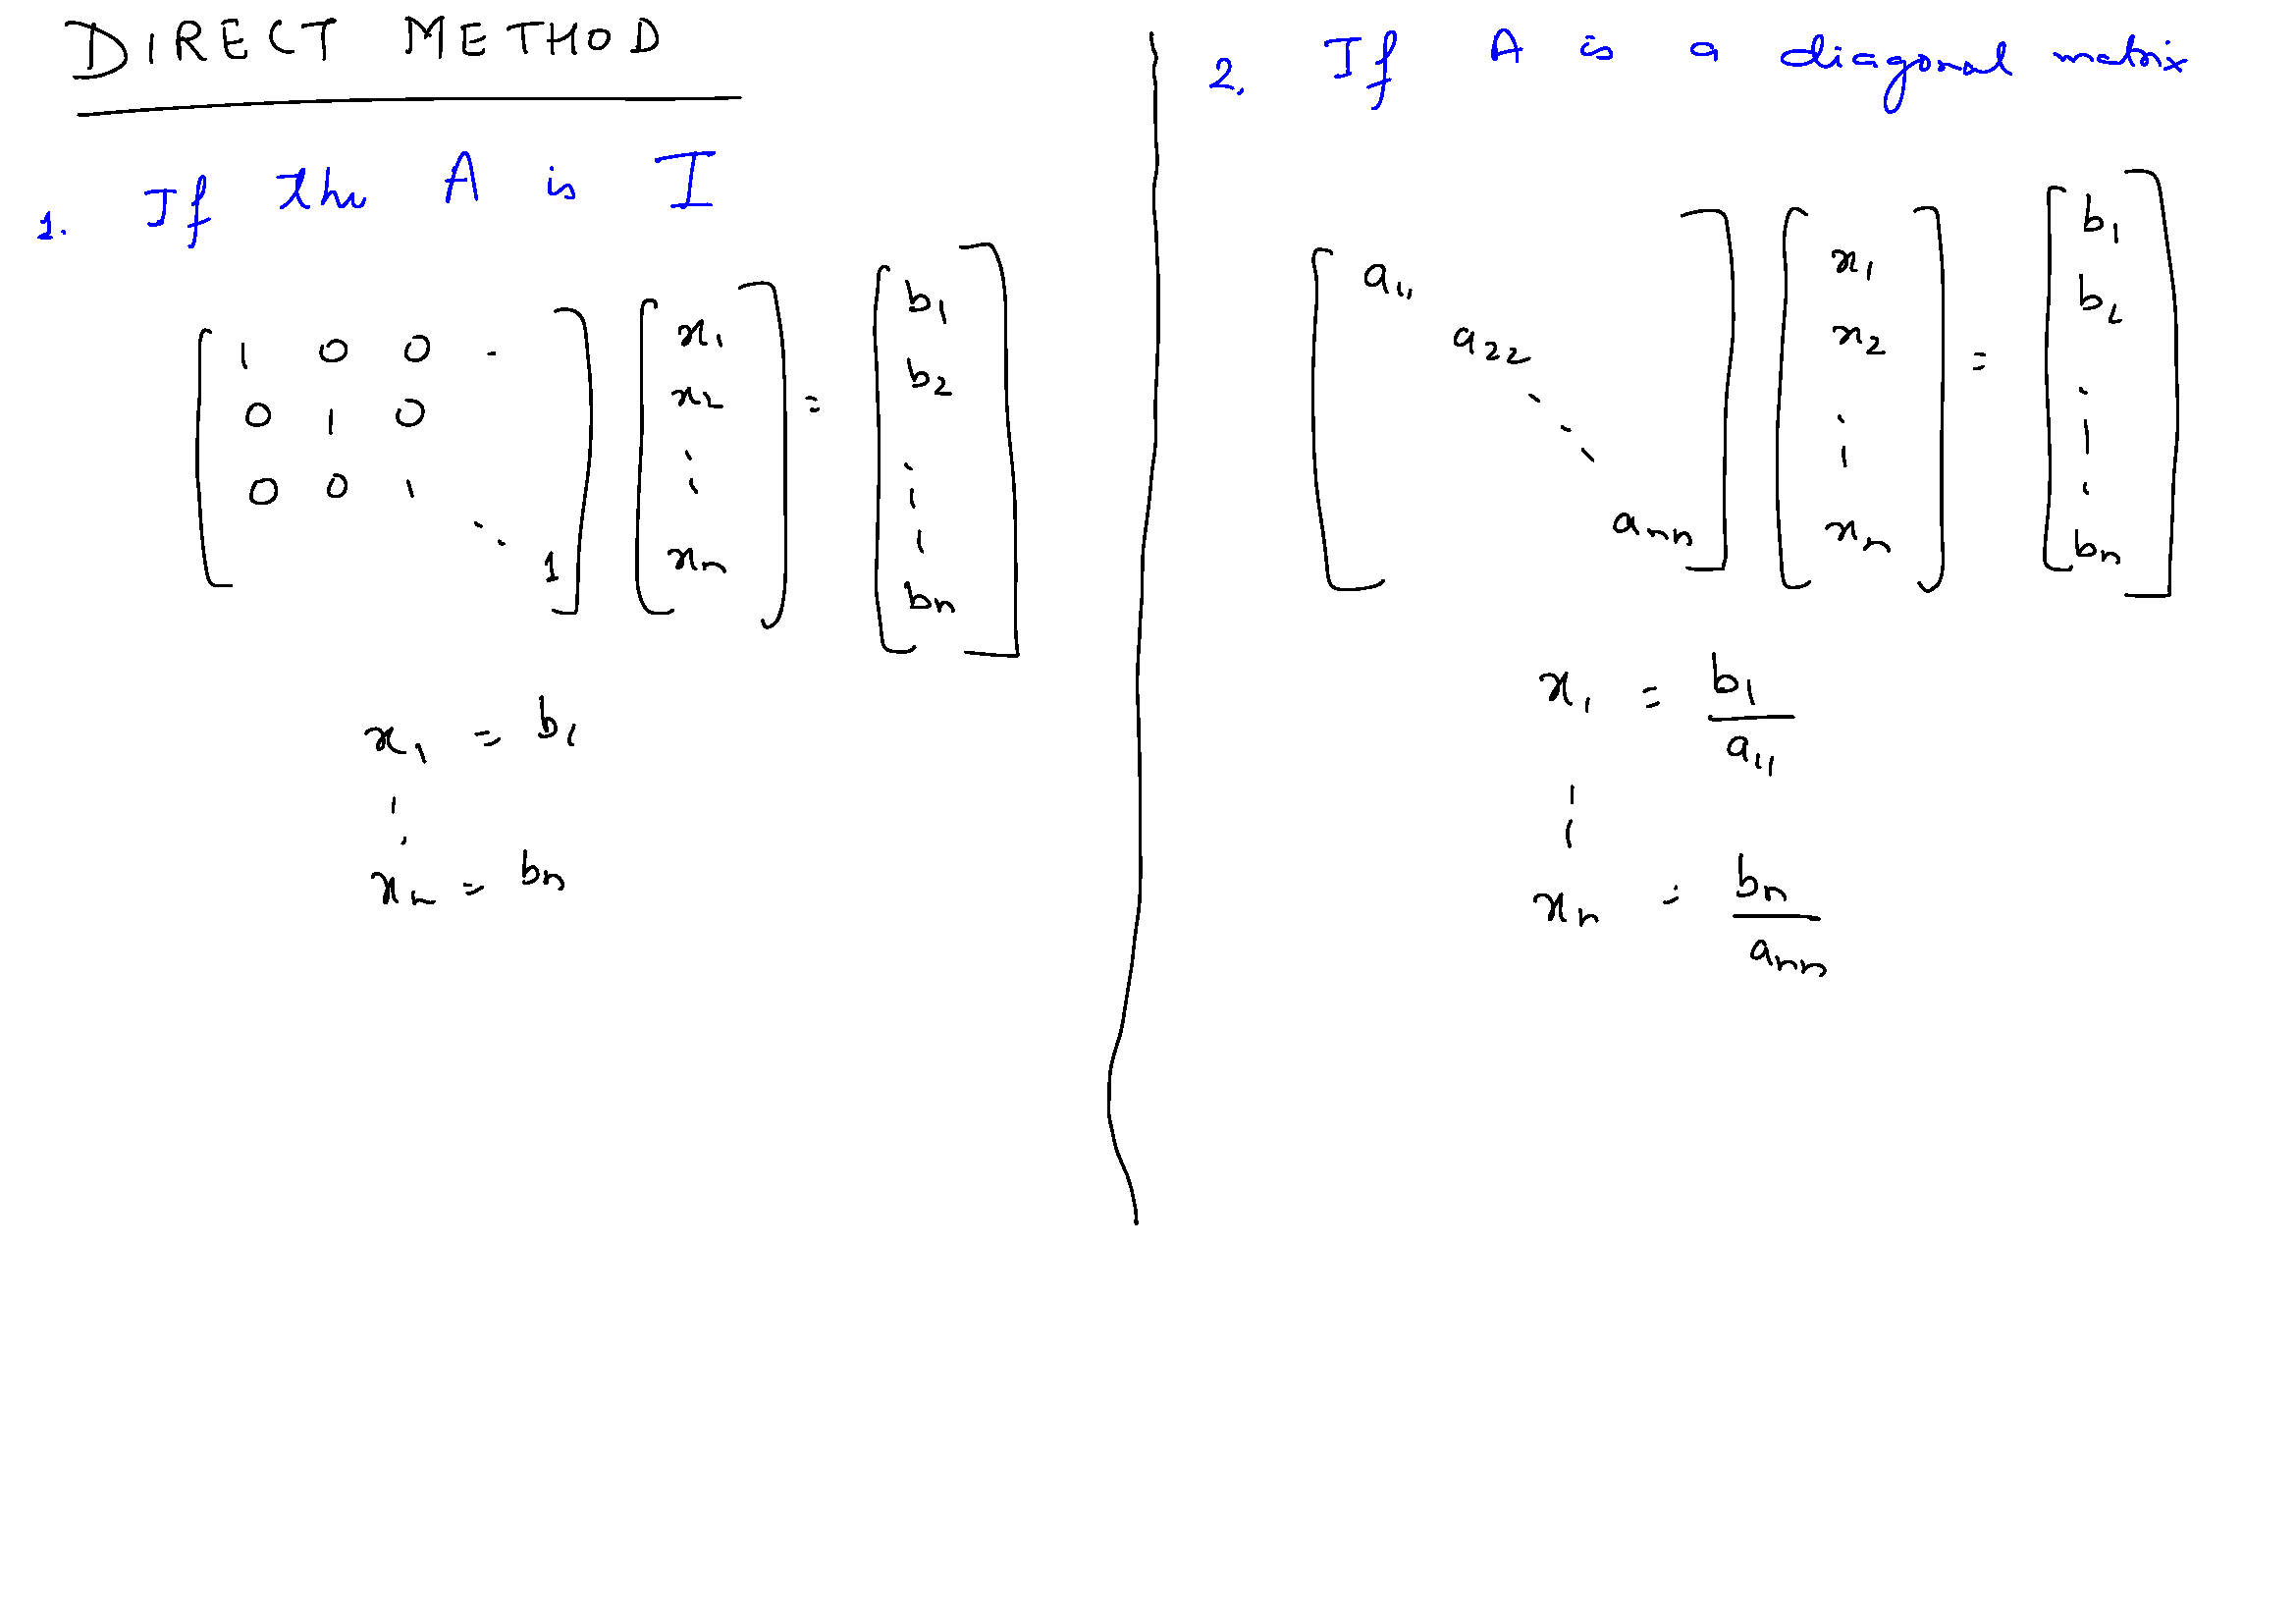 DIRECT METHOD
1. If the A is I
[ 1 0 0 .
0 1 0
0 0 1
. . 1 ] [ x1 x2 . . xn ] = [ b1 b2 . . . bn ]
x1 = b1
. .
xn = bn
2. If A is a diagonal matrix
[ a11 a22 . . . ann ] [ x1 x2 . . xn ] = [ b1 b2 . . . bn ]
x1 = b1 / a11
. .
xn = bn / ann